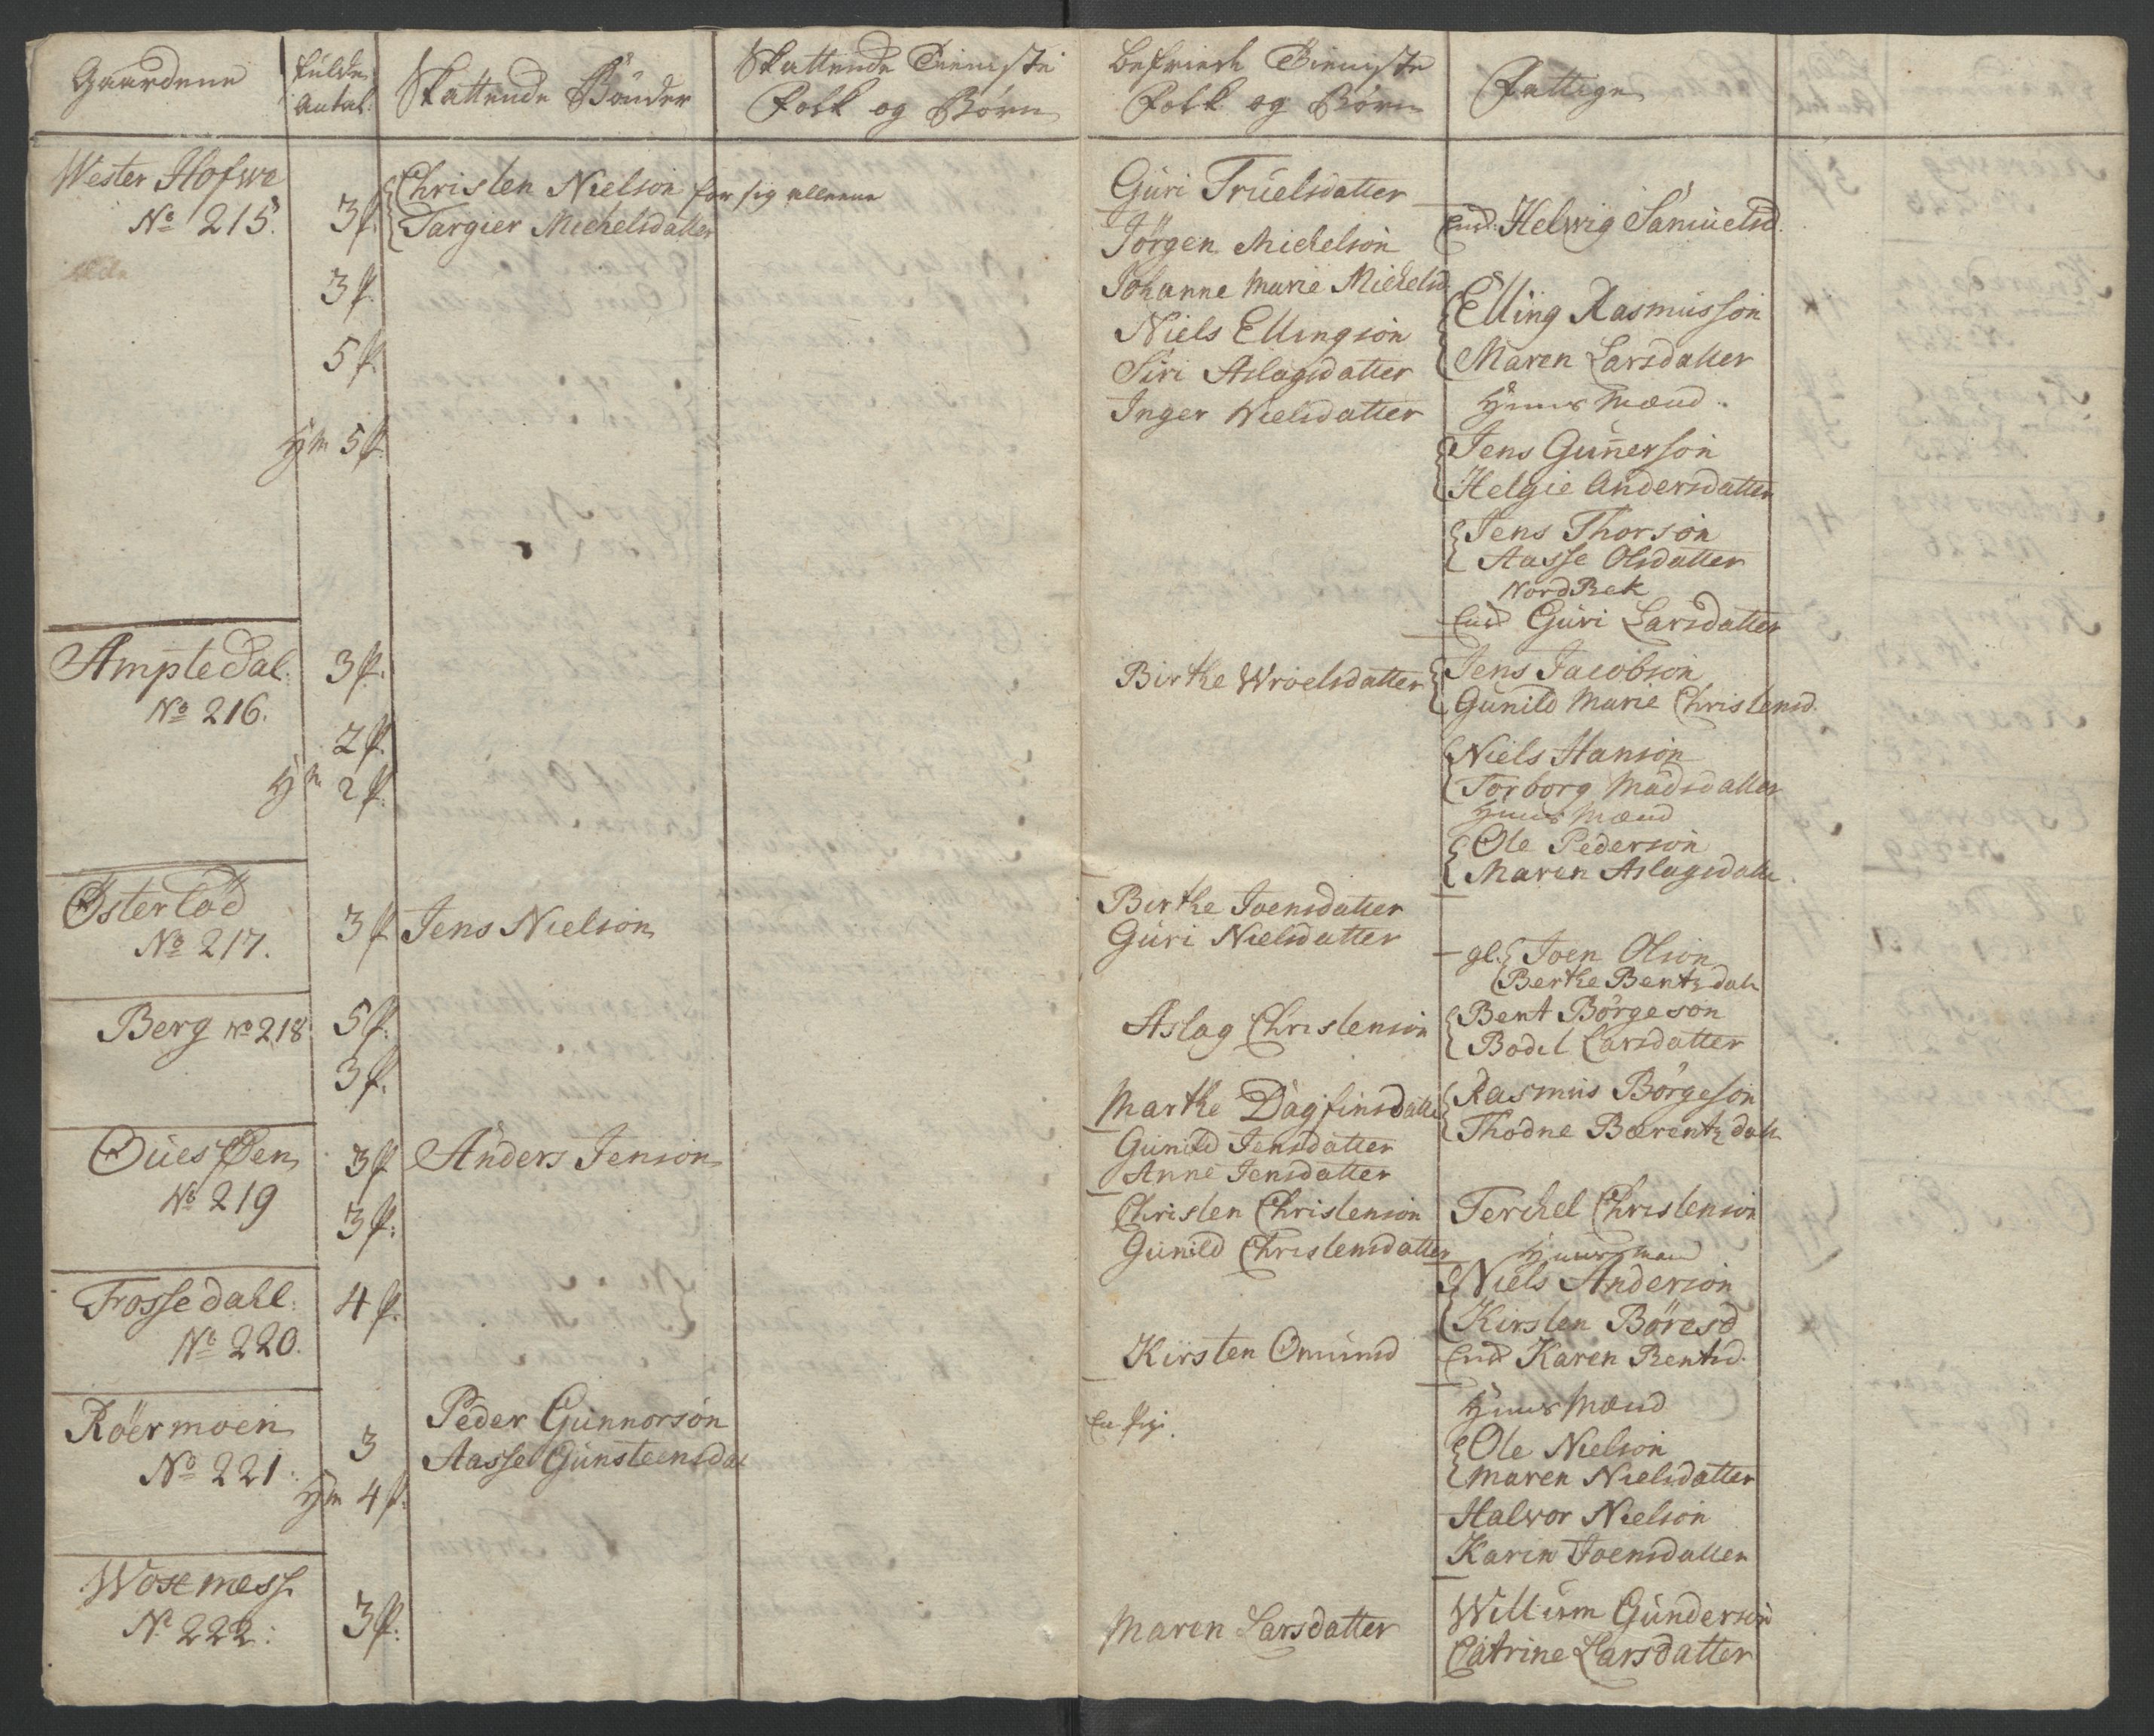 Gaardene
fulde Antal.
Skattende Bönder
Skattende Tieniste Folk og Börn
befriede Tieniste Folk og Börn
Fattige
Wester Hofwe
No 215.
3 p.
Christen Nielson for sig alleene
Targier Michelsdatter
3 p.
5 p.
Hm 5 p.
Guri Truelsdatter
Jörgen Michelson
Johanne Marie Michelsd.
Niels Ellingson
Siri Aslagsdatter
Inger Nielsdatter
End. Helwig Samuelsd.
Elling Rasmusson
Maren Larsdatter
Huus Mænd.
Jens Guñerson
Helgie Andersdatter
Jens Thorson
Aasse Olsdatter
Nord Bek
End Guri Larsdatter
Ampledal.
No 216.
3 p.
2 p.
Hm 2 p.
Birthe Wroelsdatter
Jens Jacobson
Gunild Marie Christensd.
Niels Hanson
Torborg Madsdatter
Huus Mænd
Ole Pederson
Maren Aslagsdatte
Österlod
No 217.
3 p
Jens Nielson
Birthe Joensdatter
Guri Nielsdatter
gl. Joen Olson
Berthe Bentsdatt
Berg No 218.
5 p.
3 p.
Aslag Christenson
Marthe Dagfinsdatte
Bent Börgeson
Bodel Larsdatter
Rasmus Börgeson
Thodne Bærentzdatt
No 219
3 p
3 p.
Anders Jenson
Gunild Jensdatter
Anne Jensdatter
Christen Christenson
Gunild Christensdatter
Terchel Christenson
Huusmænd
Niels Anderson
Kirsten Böresd
Frossedahl.
No 220.
4 p.
Kirsten Omunsd
End Karen Bentsd.
Röermoen
No 221.
3
Hm 4 p.
Peder Gunnorson
Aasse Gunsteensdat
En pige.
Huus Mænd
Ole Nielson
Maren Nielsdatter
Halvor Nielson
Karen Joensdatter
No 222.
3 p.
Maren Larsdatter
Willum Gunderson
Catrine Larsdatter